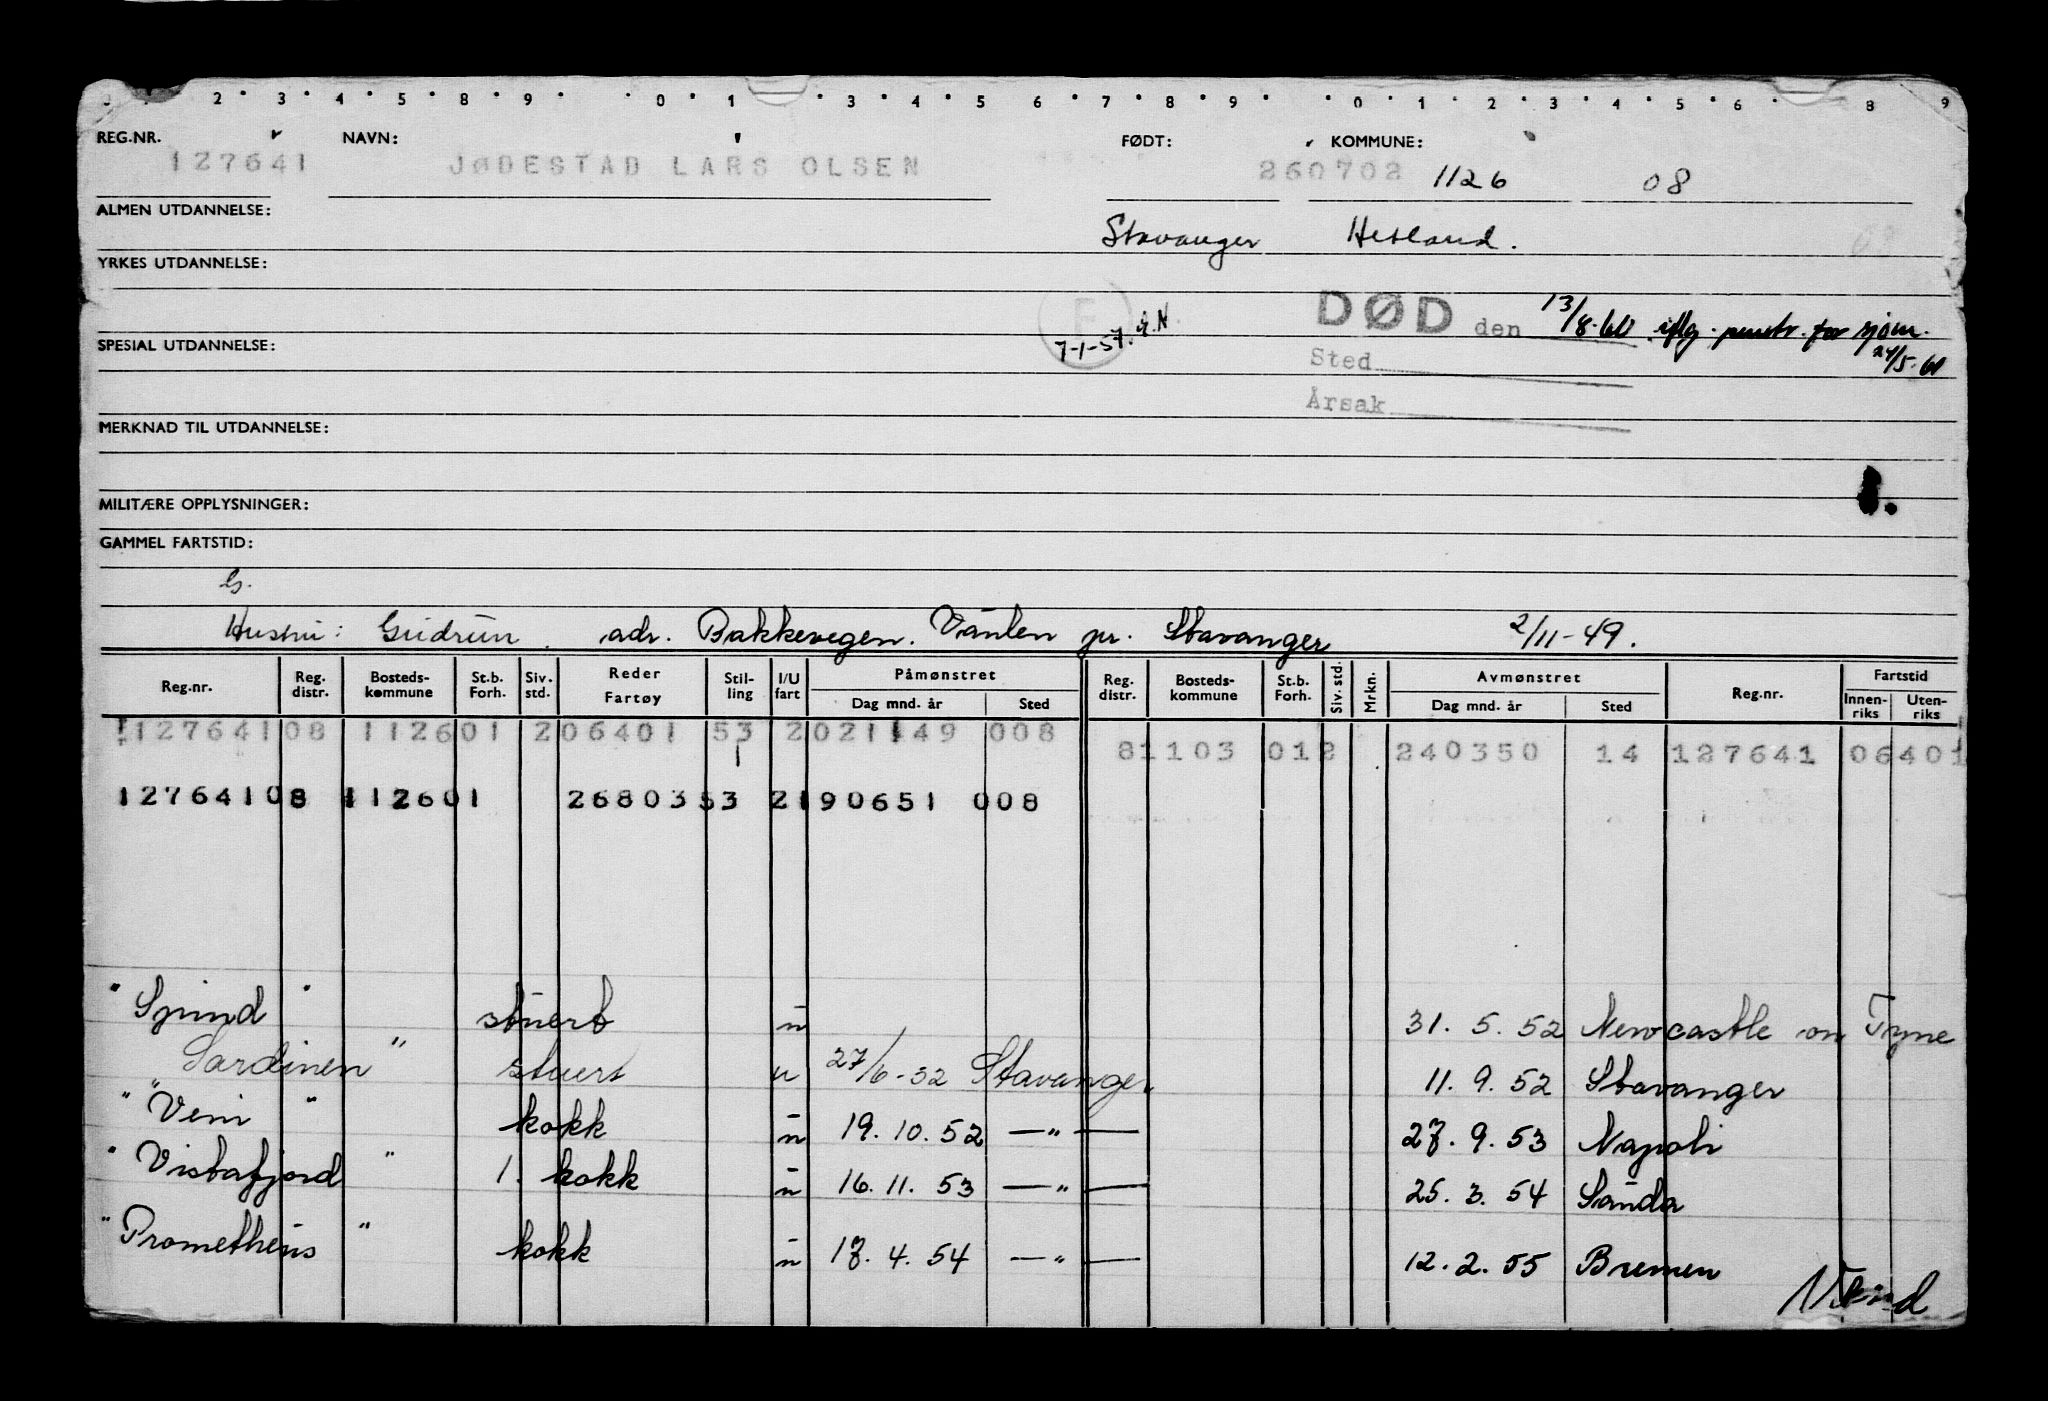 2 3 4 5 8 9 0 1 3 4 5 6 7 8 9 0 1 2 3 4 5 6 8 9
REG.NR. NAVN: FØDT: KOMMUNE:
127641 JØDESTAD LARS OLSEN 260702 1126 08
ALMEN UTDANNELSE:
Stavanger Hetland.
YRKES UTDANNELSE:
DØD den 13/8-60 iflg. pmstr. for sjøm.
7-1-57. 24/5-61
SPESIAL UTDANNELSE: Sted
Årsak
MERKNAD TIL UTDANNELSE:
MILITÆRE OPPLYSNINGER:
GAMMEL FARTSTID:
G.
Hustru: Gudrun. adr. Bakkevegen. Vånlen pr. Stavanger 2/11-49.
Reg.nr. Reg. distr. Bosteds-kommune St.b. Forh. Siv. std. Reder Fartøy Stil-ling I/U fart Påmønstret Dag mnd. år Sted Reg. distr. Bosteds-kommune St.b. Forh. Siv. std. Mrkn. Avmønstret Dag mnd. år Sted Reg.nr. Fartstid Innen-riks Uten-riks
127641 08 1126 01 2 06401 53 2 021149 008
8 1103 012 240350 14 127641 06401
127641 08 1126 01 26803 53 2 190651 008
"Spind" stuert u 31. 5. 52 Newcastle on Tyne
Sardinen" stuert u 27/6-52 Stavanger 11. 9. 52 Stavanger
"Veni" kokk u 19. 10. 52 —"— 27. 9. 53 Napoli
"Vistafjord" 1. kokk u 16. 11. 53 —"— 25. 3. 54 Sauda
"Prometheus" kokk u 17. 4. 54 —"— 12. 2. 55 Bremen
Vend